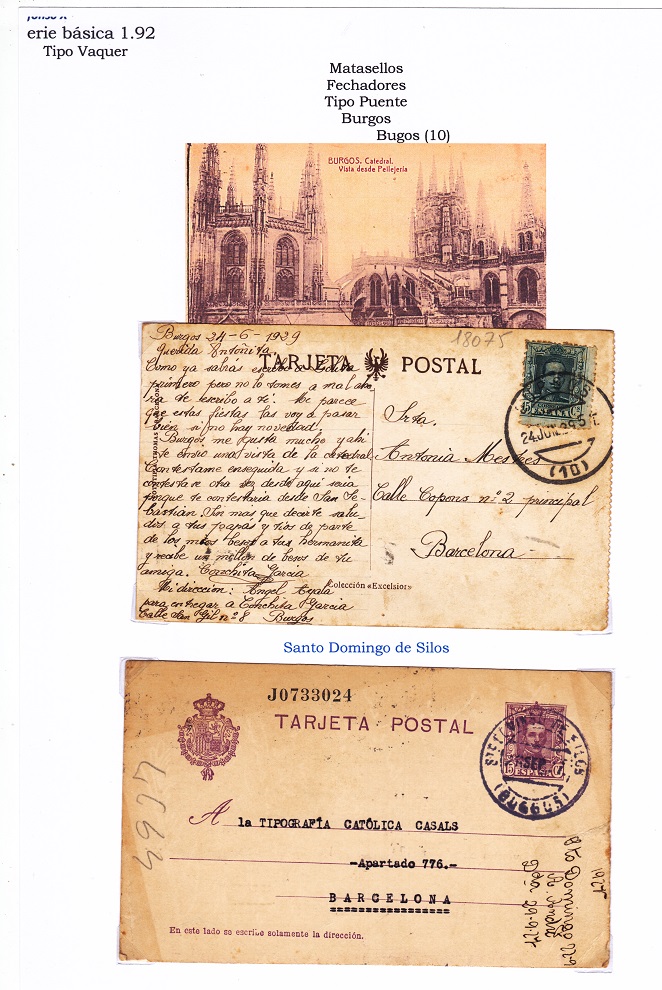 erie básica 1.92
Tipo Vaquer
Matasellos
Fechadores
Tipo Puente
Burgos
Bugos (10)
BURGOS. Catedral.
Vista desde Pellejería
18075
TARJETA POSTAL
Burgos 24-6-1929
Querida Antoñita
Como ya sabrás escribí a Lolita
primero pero no lo tomes a mal aho
ra te escribo a tí. Me parece
que estas fiestas las voy a pasar
bien si no hay novedad.
Burgos me gusta mucho y ahí
te envio una vista de la catedral
Contestame enseguida y si no te
contesta se otra vez desde aquí seria
porque te contestaria desde San Se-
bastián. Sin mas que decirte salu
dos a tus papas y tios de parte
de los mios besos a tus hermanita
y recibe un millon de besos de tu
amiga. Conchita Garcia
Mi direccion: Angel Ayala
para entregar a Conchita Garcia
Calle San Gil nº 8 Burgos
Srta.
Antonia Mestres
Calle Copons nº 2 principal
Barcelona
Colección «Excelsior»
15 ESPAÑA
24.JUN.29.5T.
(10)
Santo Domingo de Silos
J0733024
TARJETA POSTAL
15 ESPAÑA Cs
STO DOMINGO DE SILOS
SEP
(846645)
A la TIPOGRAFÍA CATÓLICA CASALS
-Apartado 776.-
BARCELONA
En este lado se escribe solamente la dirección.
Sto Domingo
29-9-27
1927